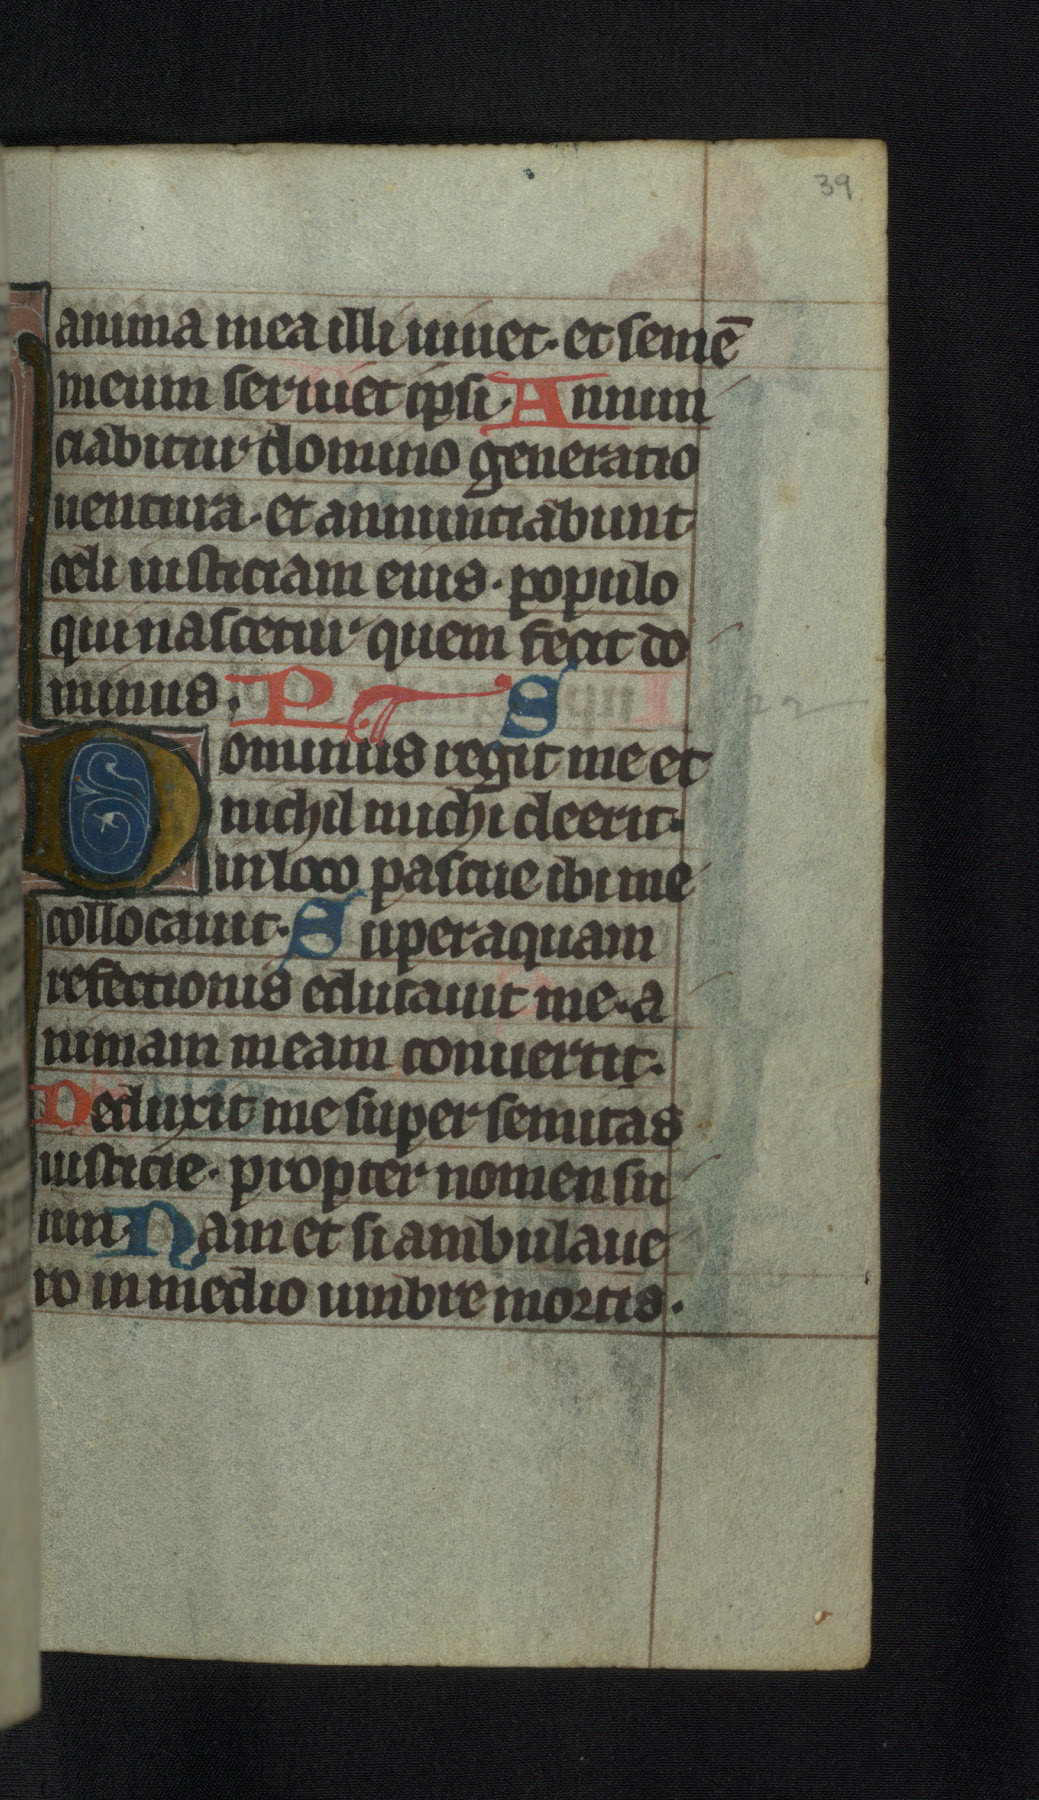 39
anima mea illi uiuet· et semē
meum seruiet ipsi· Annun
ciabitur domino generatio
uentura· et annunciabunt
celi iusticiam eius· populo
qui nascetur quem fecit do
minus· PS
22
Dominus regit me et
nichil michi deerit·
in loco pascue ibi me
collocauit· Super aquam
refectionis educauit me· a
nimam meam conuertit·
Deduxit me super semitas
iusticie· propter nomen su
um· Nam et si ambulaue
ro in medio umbre mortis·